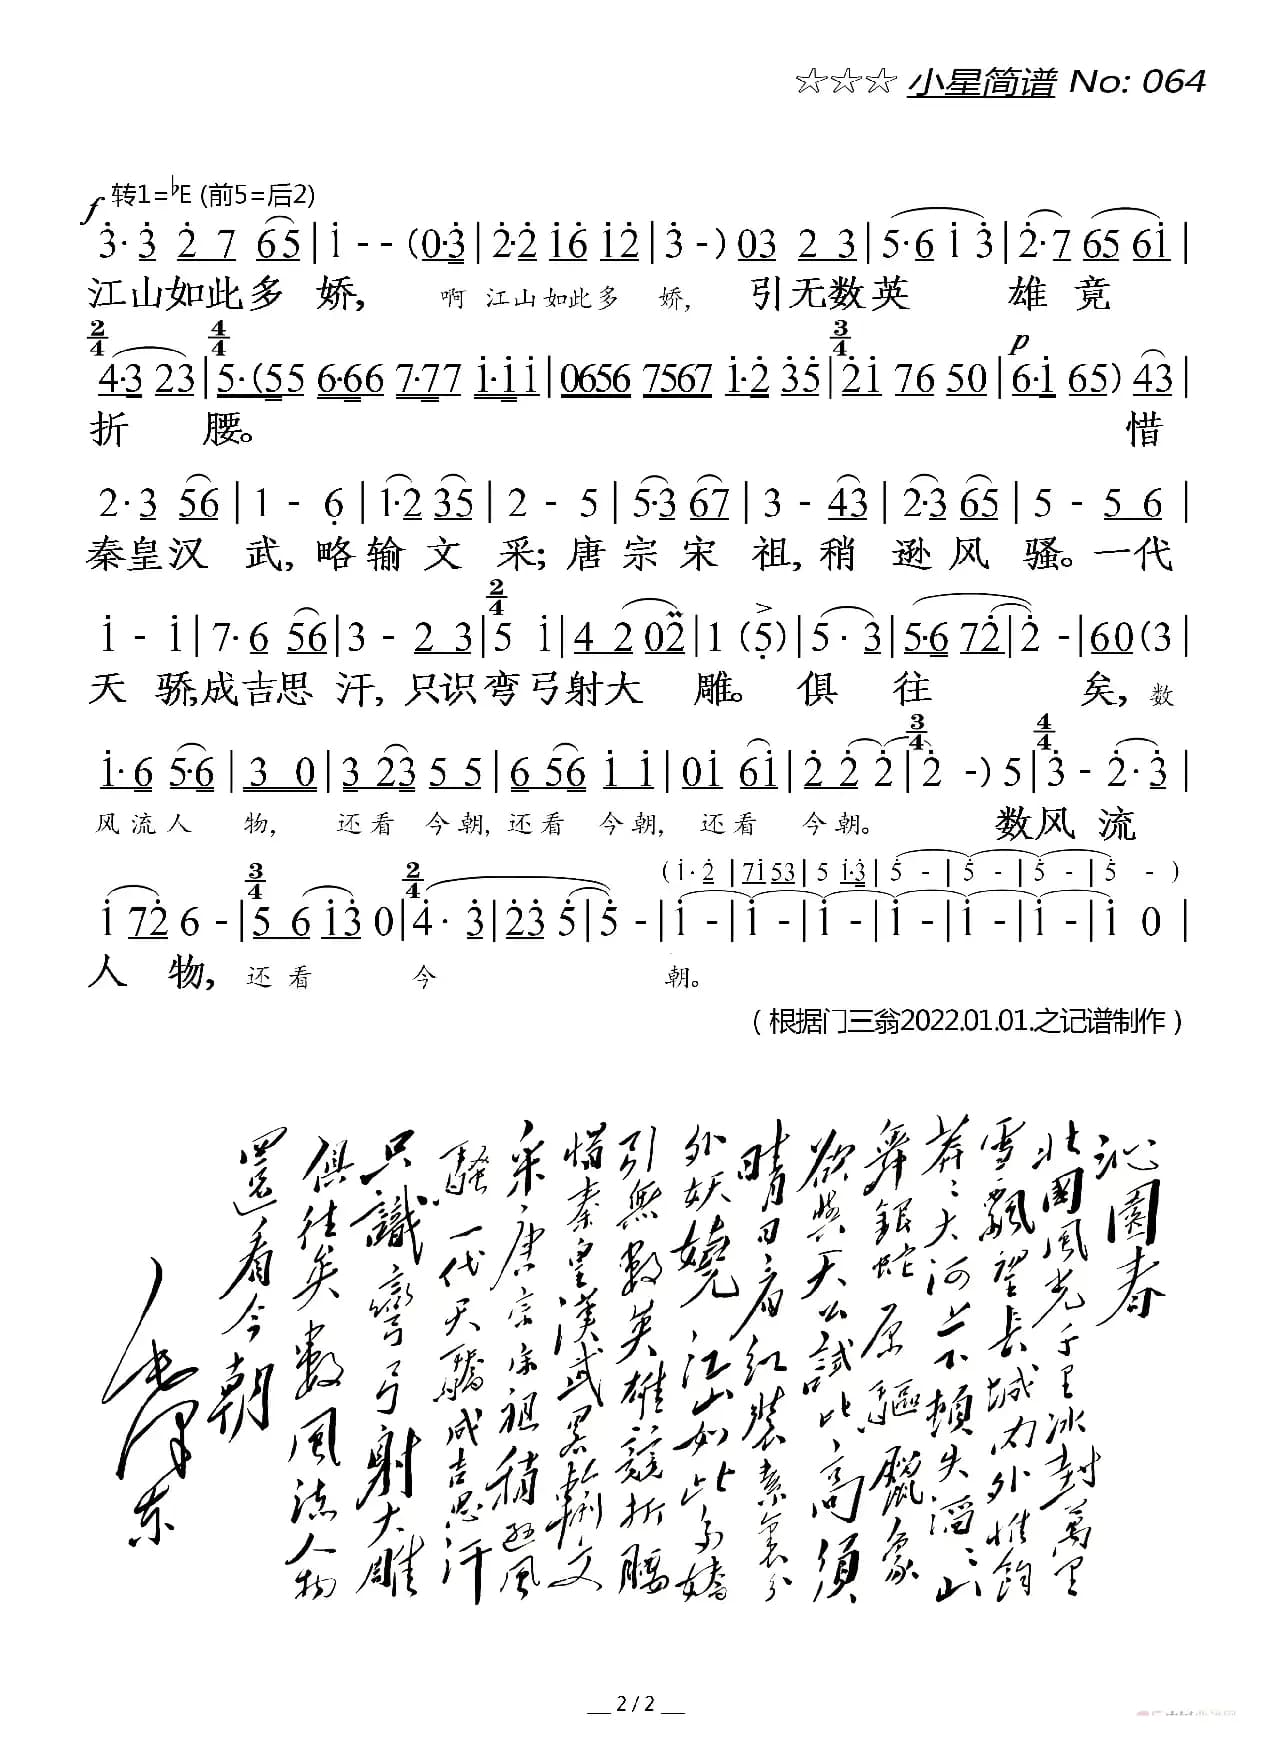 ☆☆☆ 小星简谱 No: 064
转1=♭E (前5=后2)
f
3̇· 3̇ 2̇ 7 6 5 | 1̇ - - (0·3̇ | 2̇·2̇ 1̇6 1̇2̇ | 3̇ -) 03 2 3 | 5·6 1̇ 3̇ | 2̇·7 65 61̇ |
江山如此多 娇, 啊 江山如此多 娇, 引无数英 雄 竟
2/4 4/4 3/4 p
4·3 23 | 5·(55 6·66 7·77 1̇·1̇1̇ | 0656 7567 1̇·2̇ 3̇5̇ | 2̇1̇ 76 50 | 6·1̇ 65) 43 |
折 腰。 惜
2·3 56 | 1 - 6̣ | 1·2 35 | 2 - 5 | 5·3 67 | 3 - 43 | 2·3 65 | 5 - 5 6 |
秦皇汉 武, 略输文 采; 唐宗宋 祖, 稍 逊风 骚。一代
2/4
1̇ - 1̇ | 7·6 56 | 3 - 2 3 | 5 1̇ | 4 2 02̇ | 1 (5̣) | 5· 3 | 5·6 72̇ | 2̇ - | 60 (3 |
天 骄,成吉思 汗, 只识弯弓射大 雕。 俱 往 矣, 数
3/4 4/4
1̇·6 5·6 | 3 0 | 3 23 5 5 | 6 56 1̇ 1̇ | 01̇ 61̇ | 2̇ 2̇ 2̇ | 2̇ -) 5 | 3̇ - 2̇·3̇ |
风流人 物, 还看 今朝, 还看 今朝, 还看 今朝。 数风 流
(1̇·2̇ | 71̇ 53 | 5 1̇·3̇ | 5̇ - | 5̇ - | 5̇ - | 5̇ - )
3/4 2/4
1̇ 72̇ 6 - | 5 6 1̇3̇ 0 | 4̇· 3̇ | 2̇3̇ 5̇ | 5̇ - | 1̇ - | 1̇ - | 1̇ - | 1̇ - | 1̇ - | 1̇ - | 1̇ 0 |
人 物, 还看 今 朝。
（根据门三翁2022.01.01.之记谱制作）
沁園春
北國風光千里冰封萬里
雪飄望長城内外惟餘
莽ミ大河上下頓失滔ミ山
舞銀蛇原驅臘象
欲與天公試比高須
晴日看紅裝素裹分
外妖嬈江山如此多嬌
引無數英雄競折腰
惜秦皇漢武畧輸文
采唐宗宋祖稍遜風
騷一代天驕成吉思汗
只識彎弓射大雕
俱往矣數風流人物
還看今朝
毛澤東
2 / 2